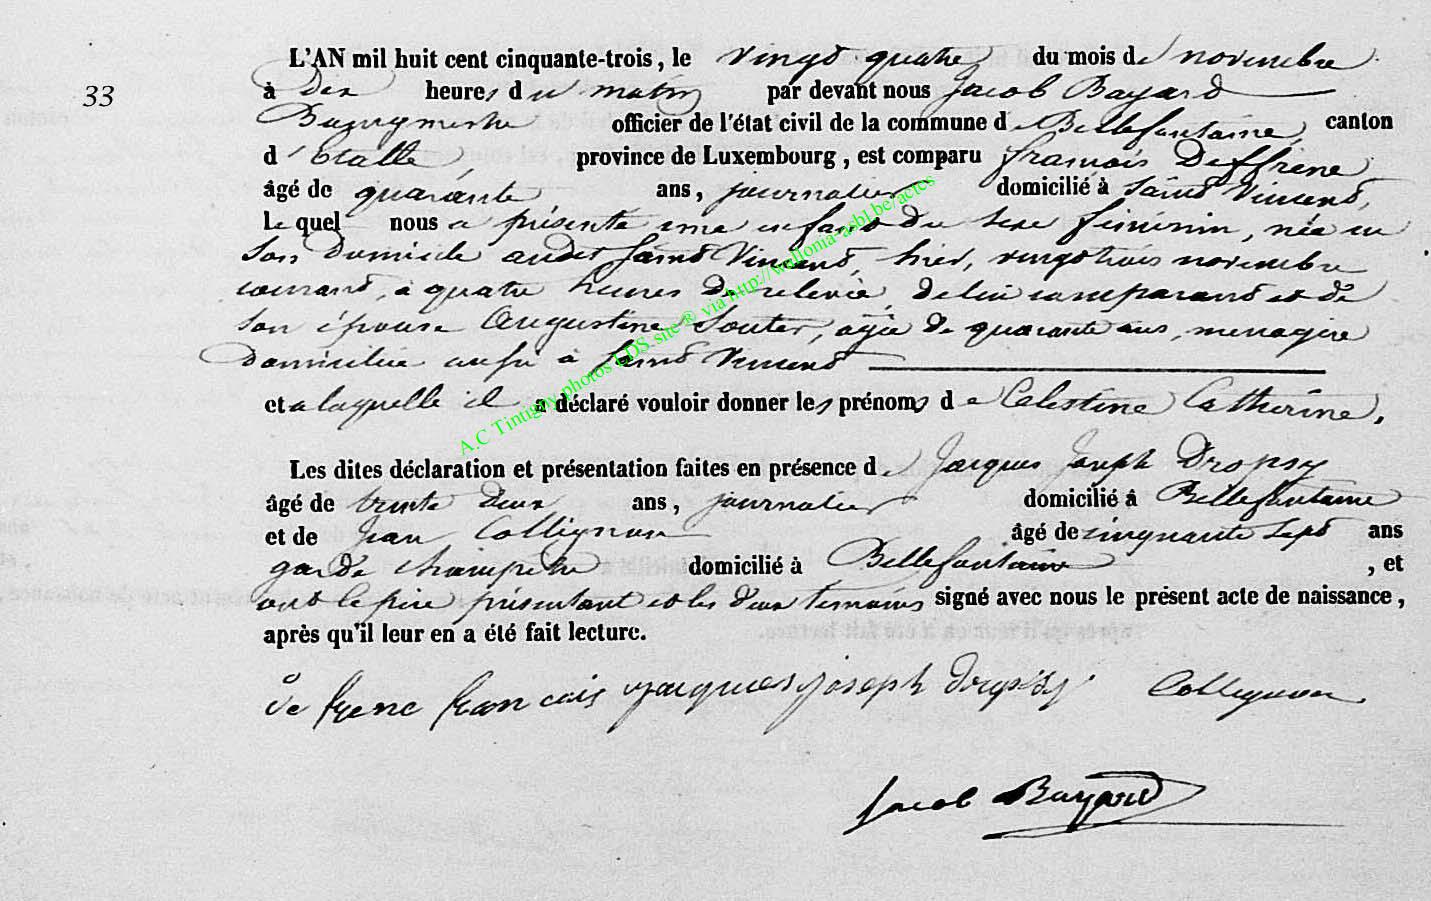 33
L'AN mil huit cent cinquante-trois, le vingt quatre du mois de novembre
à dix heures du matin par devant nous Jacob Bayard
Bourgmestre officier de l'état civil de la commune de Bellefontaine, canton
d'Etalle, province de Luxembourg, est comparu françois Deffrene
âgé de quarante ans, journalier domicilié à Saint Vincent,
Lequel nous a présenté une enfant du sexe féminin, née en
son domicile audit Saint Vincent, hier, vingt trois novembre
courant, à quatre heures de relevée, de lui comparant et de
son épouse Augustine Souter, agée de quarante ans, menagère
domiciliée aussi à Saint Vincent
et a laquelle il a déclaré vouloir donner les prénoms de Celestine Catherine,
Les dites déclaration et présentation faites en présence de Jacques Joseph Dropsy
âgé de trente deux ans, journalier domicilié à Bellefontaine
et de Jean Collignon âgé de cinquante sept ans
garde champetre domicilié à Bellefontaine, et
ont le père présentant et les deux temoins signé avec nous le présent acte de naissance,
après qu'il leur en a été fait lecture.
françois jacques joseph dropsy Collignon
Jacob Bayard
A.C Tintigny photos LDS site ® via http://wallonia-asbl.be/actes